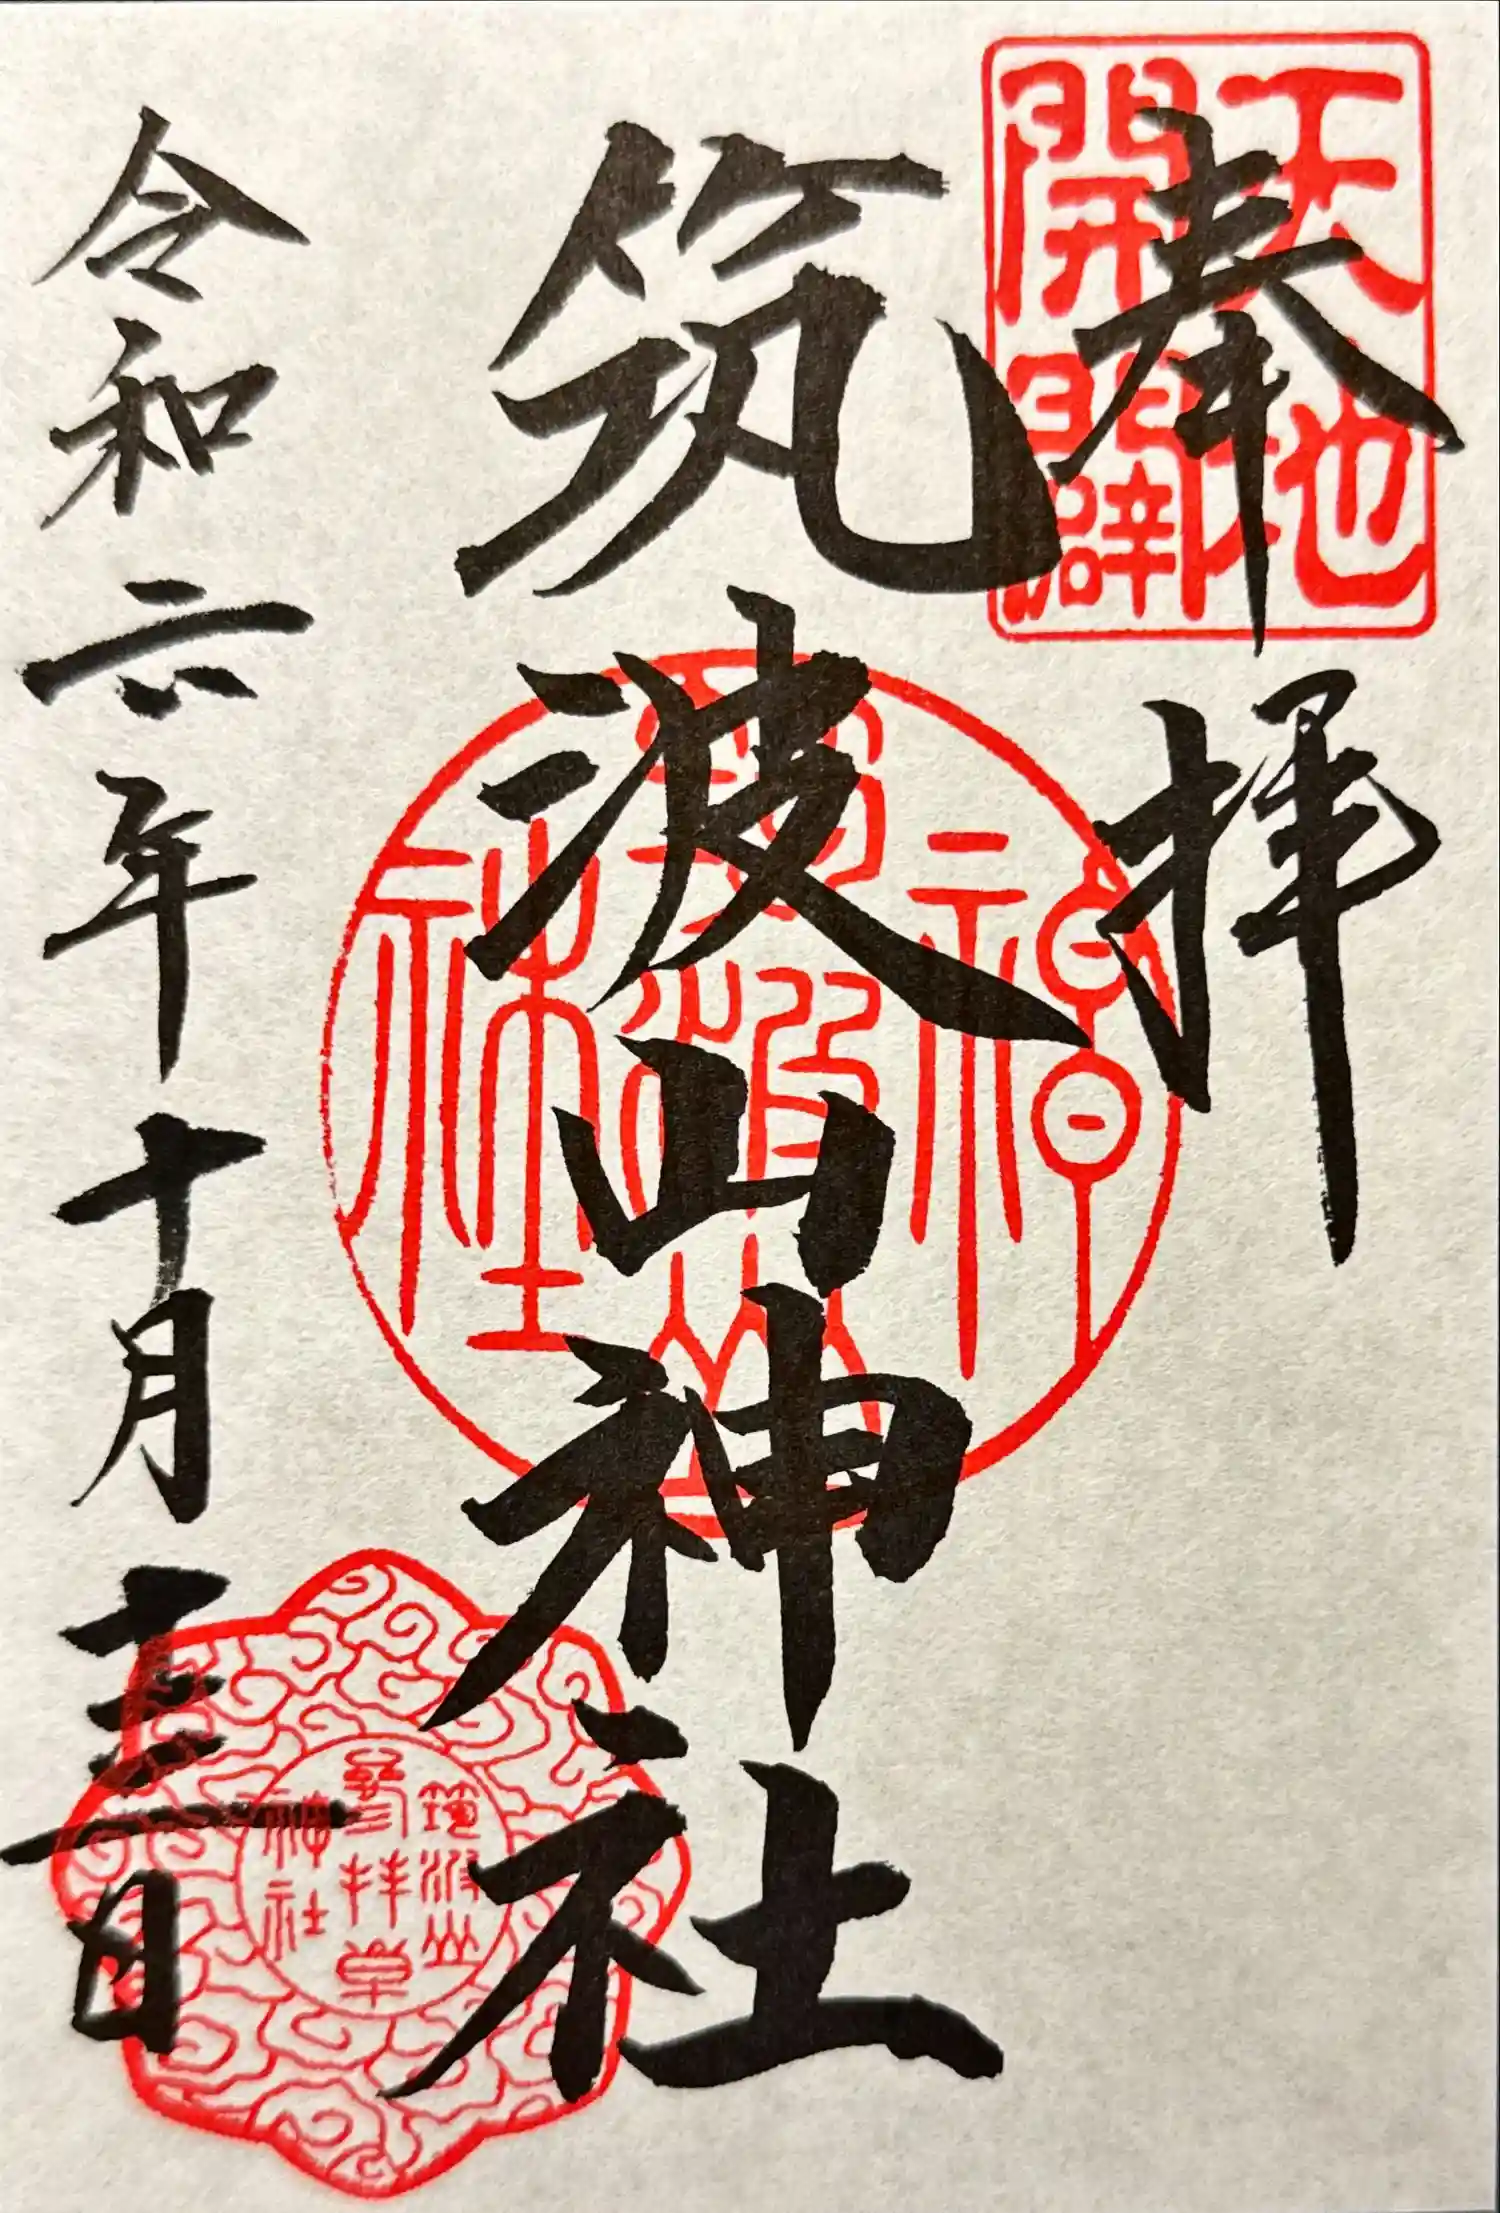 天地
開闢
奉拝
筑波山神社
筑波山
神
社
令和六年十月十三日
筑波山
参拝章
神社